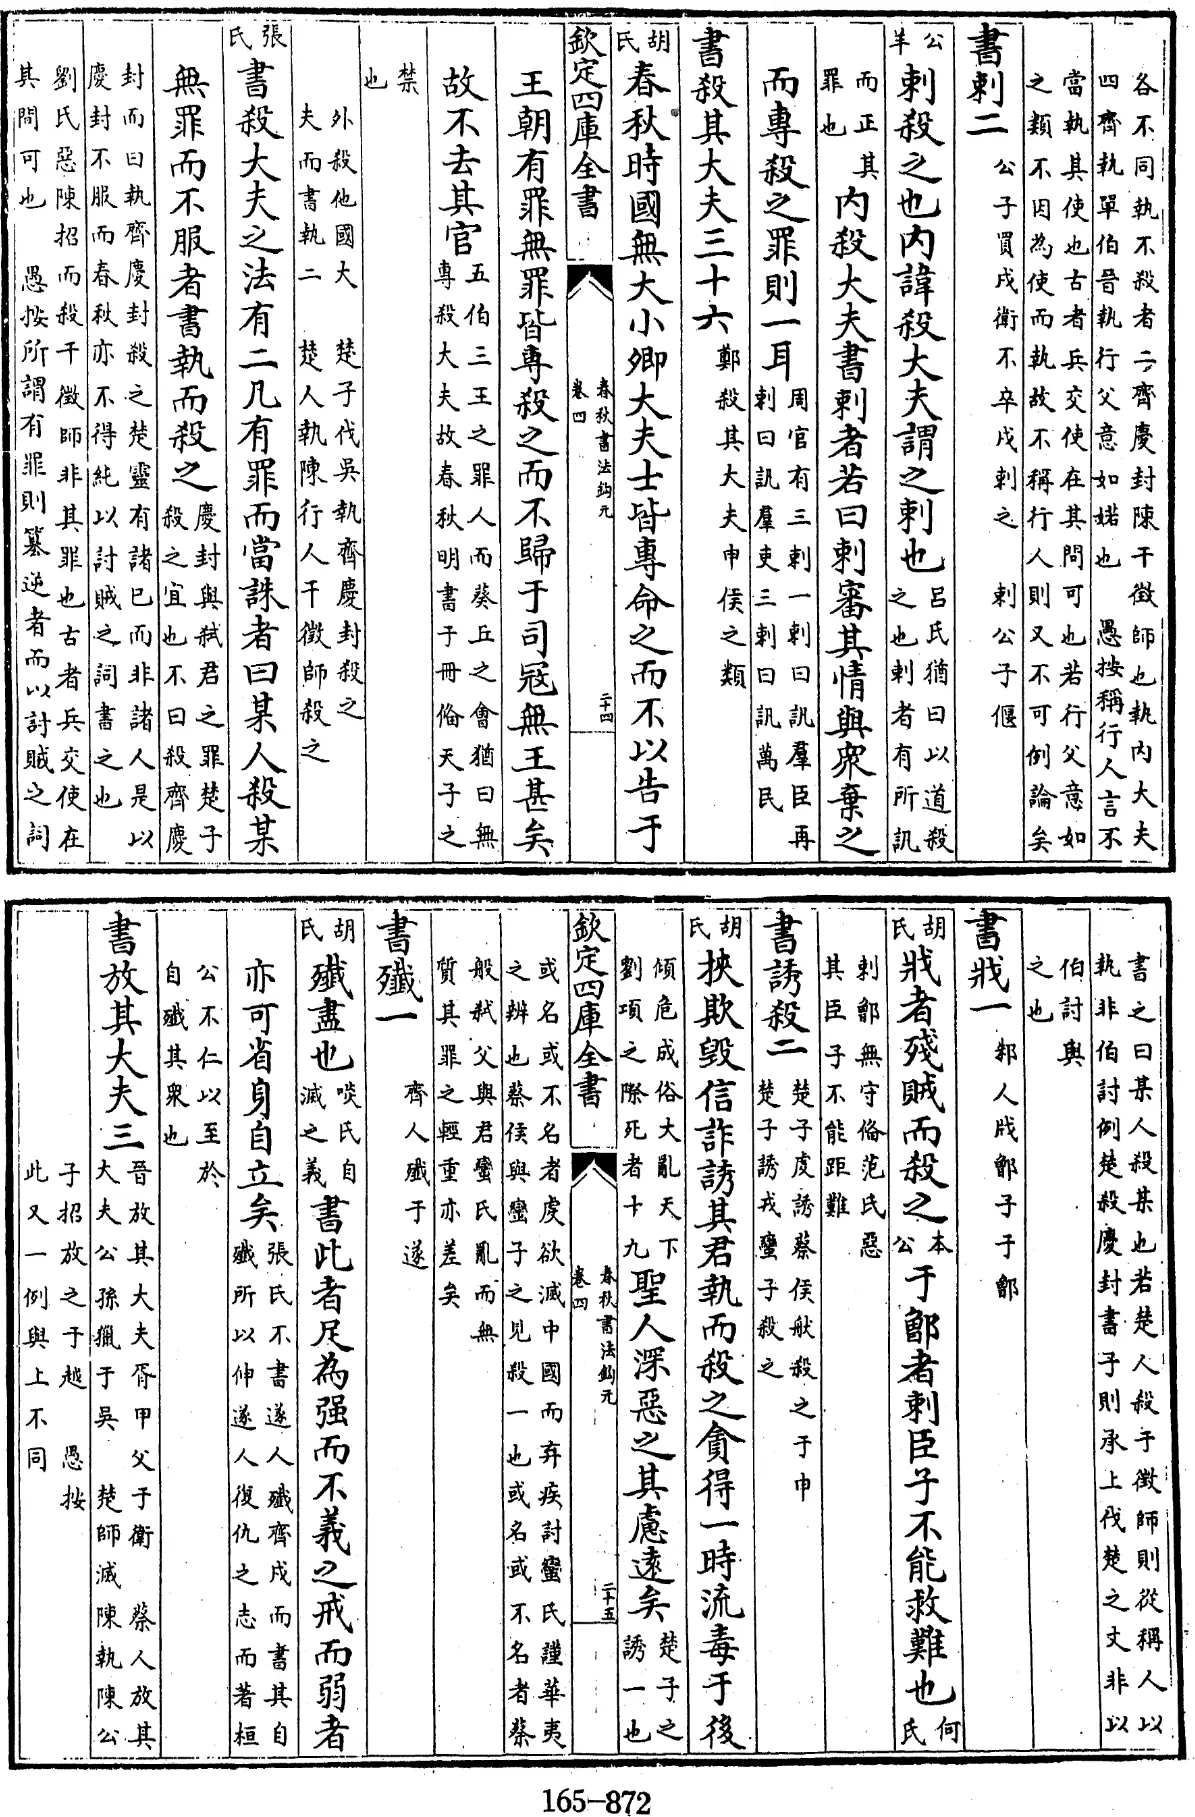 各不同執不殺者二齊慶封陳干徵師也執内大夫
四齊執單伯晉執行父意如婼也　愚按稱行人言不
當執其使也古者兵交使在其間可也若行父意如
之類不因為使而執故不稱行人則又不可例論矣
書刺二　公子買戍衛不卒戍刺之　刺公子偃
公羊　刺殺之也内諱殺大夫謂之刺也　呂氏猶曰以道殺之也刺者有所訊
而正其罪也　内殺大夫書刺者若曰刺審其情與衆棄之
而專殺之罪則一耳　周官有三刺一刺曰訊羣臣再刺曰訊羣吏三刺曰訊萬民
書殺其大夫三十六　鄭殺其大夫申侯之類
胡氏　春秋時國無大小卿大夫士皆專命之而不以告于
欽定四庫全書　春秋書法鈎元　卷四　二十四
王朝有罪無罪皆專殺之而不歸于司寇無王甚矣
故不去其官　五伯三王之罪人而葵丘之會猶曰無專殺大夫故春秋明書于冊俻天子之
禁也
外殺他國大夫而書執二　楚子伐吳執齊慶封殺之　楚人執陳行人干徵師殺之
張氏　書殺大夫之法有二凡有罪而當誅者曰某人殺某
無罪而不服者書執而殺之　慶封與弑君之罪楚子殺之宜也不曰殺齊慶
封而曰執齊慶封殺之楚靈有諸已而非諸人是以
慶封不服而春秋亦不得純以討賊之詞書之也
劉氏惡陳招而殺干徵師非其罪也古者兵交使在
其間可也　愚按所謂有罪則簒逆者而以討賊之詞
書之曰某人殺某也若楚人殺于徵師則從稱人以
執非伯討例楚殺慶封書子則承上伐楚之文非以
伯討與之也
書戕一　邾人戕鄫子于鄫
胡氏　戕者殘賊而殺之　本公　于鄫者刺臣子不能救難也　何氏
刺鄫無守俻范氏惡其臣子不能距難
書誘殺二　楚子虔誘蔡侯般殺之于申　楚子誘戎蠻子殺之
胡氏　挾欺毀信詐誘其君執而殺之貪得一時流毒于後
傾危成俗大亂天下劉項之際死者十九　聖人深惡之其慮遠矣　楚子之誘一也
欽定四庫全書　春秋書法鈎元　卷四　二十五
或名或不名者虔欲滅中國而弃疾討蠻氏謹華夷
之辨也蔡侯與蠻子之見殺一也或名或不名者蔡
般弑父與君蠻氏亂而無質其罪之輕重亦差矣
書殲一　齊人殲于遂
胡氏　殲盡也　啖氏自滅之義　書此者足為强而不義之戒而弱者
亦可省身自立矣　張氏不書遂人殲齊戍而書其自殲所以伸遂人復仇之志而著桓
公不仁以至於自殲其衆也
書放其大夫三　晉放其大夫胥甲父于衛　蔡人放其大夫公孫獵于吳　楚師滅陳執陳公
子招放之于越　愚按此又一例與上不同
165-872